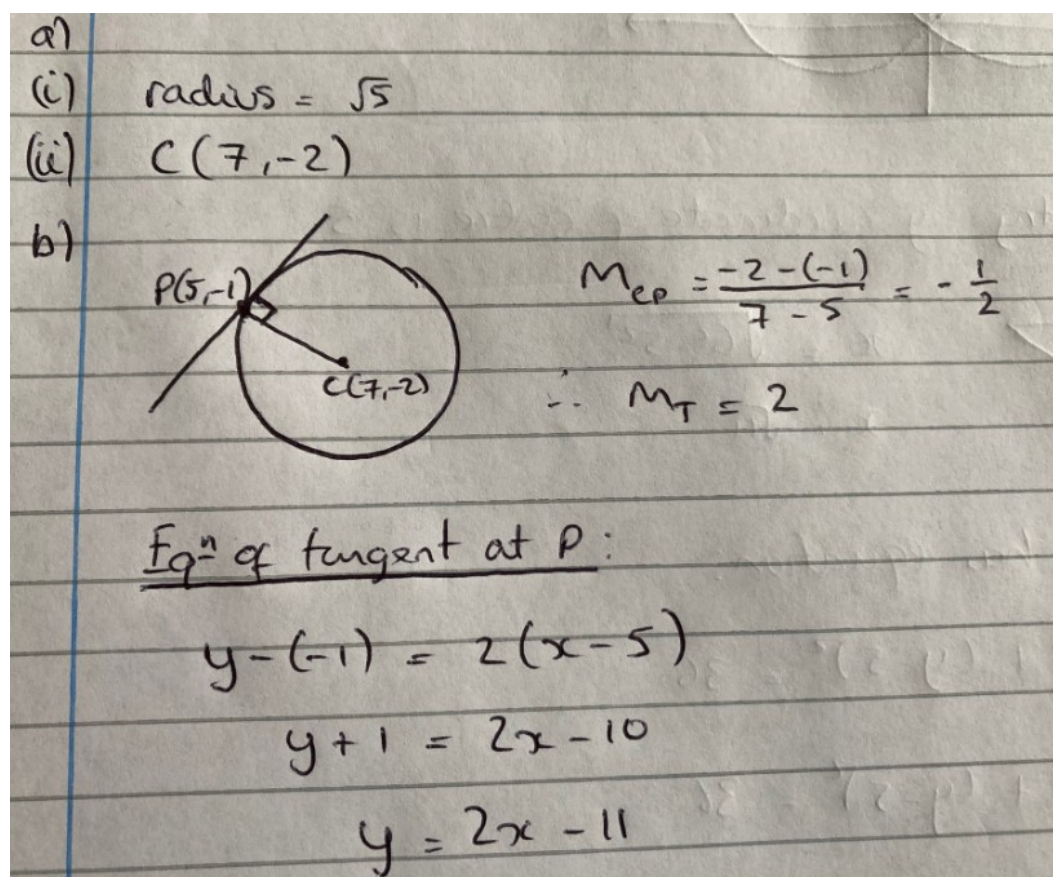 a)
(i) radius = √5
(ii) C(7,-2)
b)
P(5,-1)
C(7,-2)
M_CP = (-2-(-1))/(7-5) = -1/2
∴ M_T = 2
Eqⁿ of tangent at P:
y-(-1) = 2(x-5)
y+1 = 2x-10
y = 2x-11